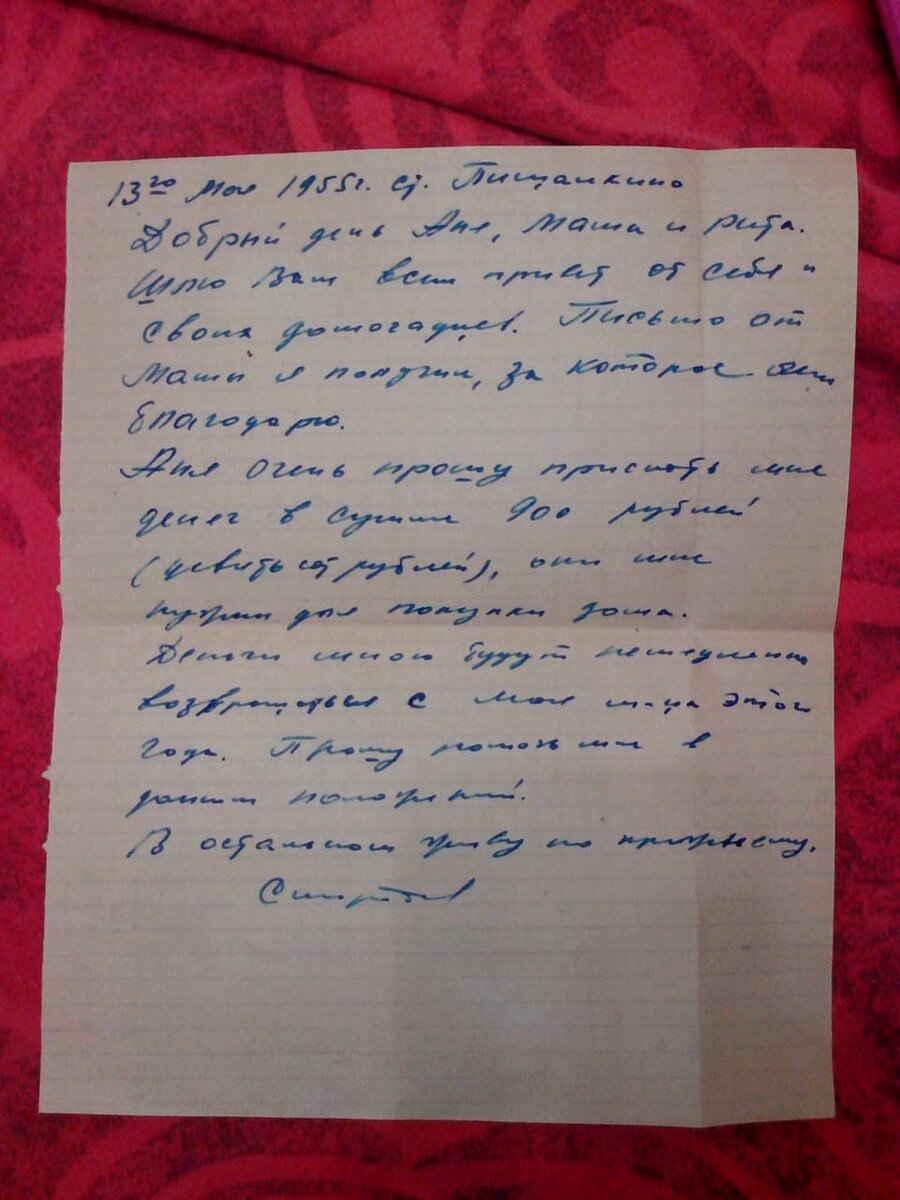 13го Мая 1955г. ст. Пищалкино
Добрый день Аня, Маша и Рита.
Шлю Вам всем привет от себя и
своих домочадцев. Письмо от
Маши я получил, за которое
благодарю.
Аня очень прошу прислать мне
денег в сумме 900 рублей
(девятьсот рублей), они мне
нужны для покупки дома.
Деньги мною будут немедленно
возвращаться с мая м-ца этого
года. Прошу помочь мне в
данном положений.
В остальном живу по прежнему.